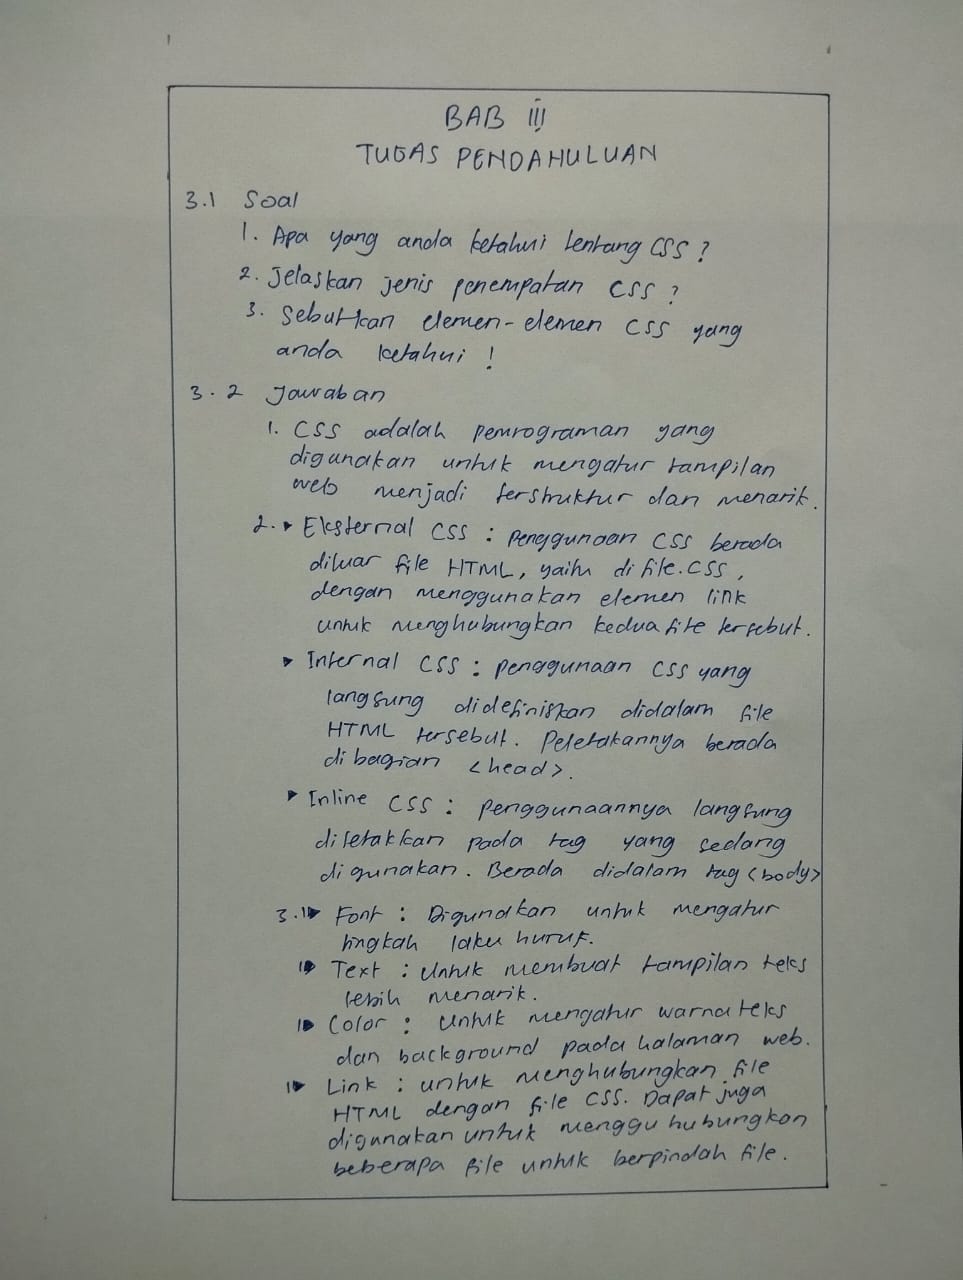 BAB III
TUGAS PENDAHULUAN
3.1 Soal
1. Apa yang anda ketahui tentang CSS ?
2. Jelaskan jenis penempatan CSS ?
3. Sebutkan elemen-elemen CSS yang
anda ketahui !
3.2 Jawaban
1. CSS adalah pemrograman yang
digunakan untuk mengatur tampilan
web menjadi terstruktur dan menarik.
2. ▶ Eksternal CSS : Penggunaan CSS berada
diluar file HTML, yaitu di file.css,
dengan menggunakan elemen link
untuk menghubungkan kedua file tersebut.
▶ Internal CSS : penggunaan CSS yang
langsung didefiniskan didalam file
HTML tersebut. Peletakannya berada
di bagian <head>.
▶ Inline CSS : penggunaannya langsung
diletakkan pada tag yang sedang
digunakan. Berada didalam tag <body>
3. ▶ Font : Digunakan untuk mengatur
tingkah laku huruf.
▶ Text : Untuk membuat tampilan teks
lebih menarik.
▶ Color : Untuk mengatur warna teks
dan background pada halaman web.
▶ Link : untuk menghubungkan file
HTML dengan file CSS. Dapat juga
digunakan untuk menggu hubungkan
beberapa file untuk berpindah file.